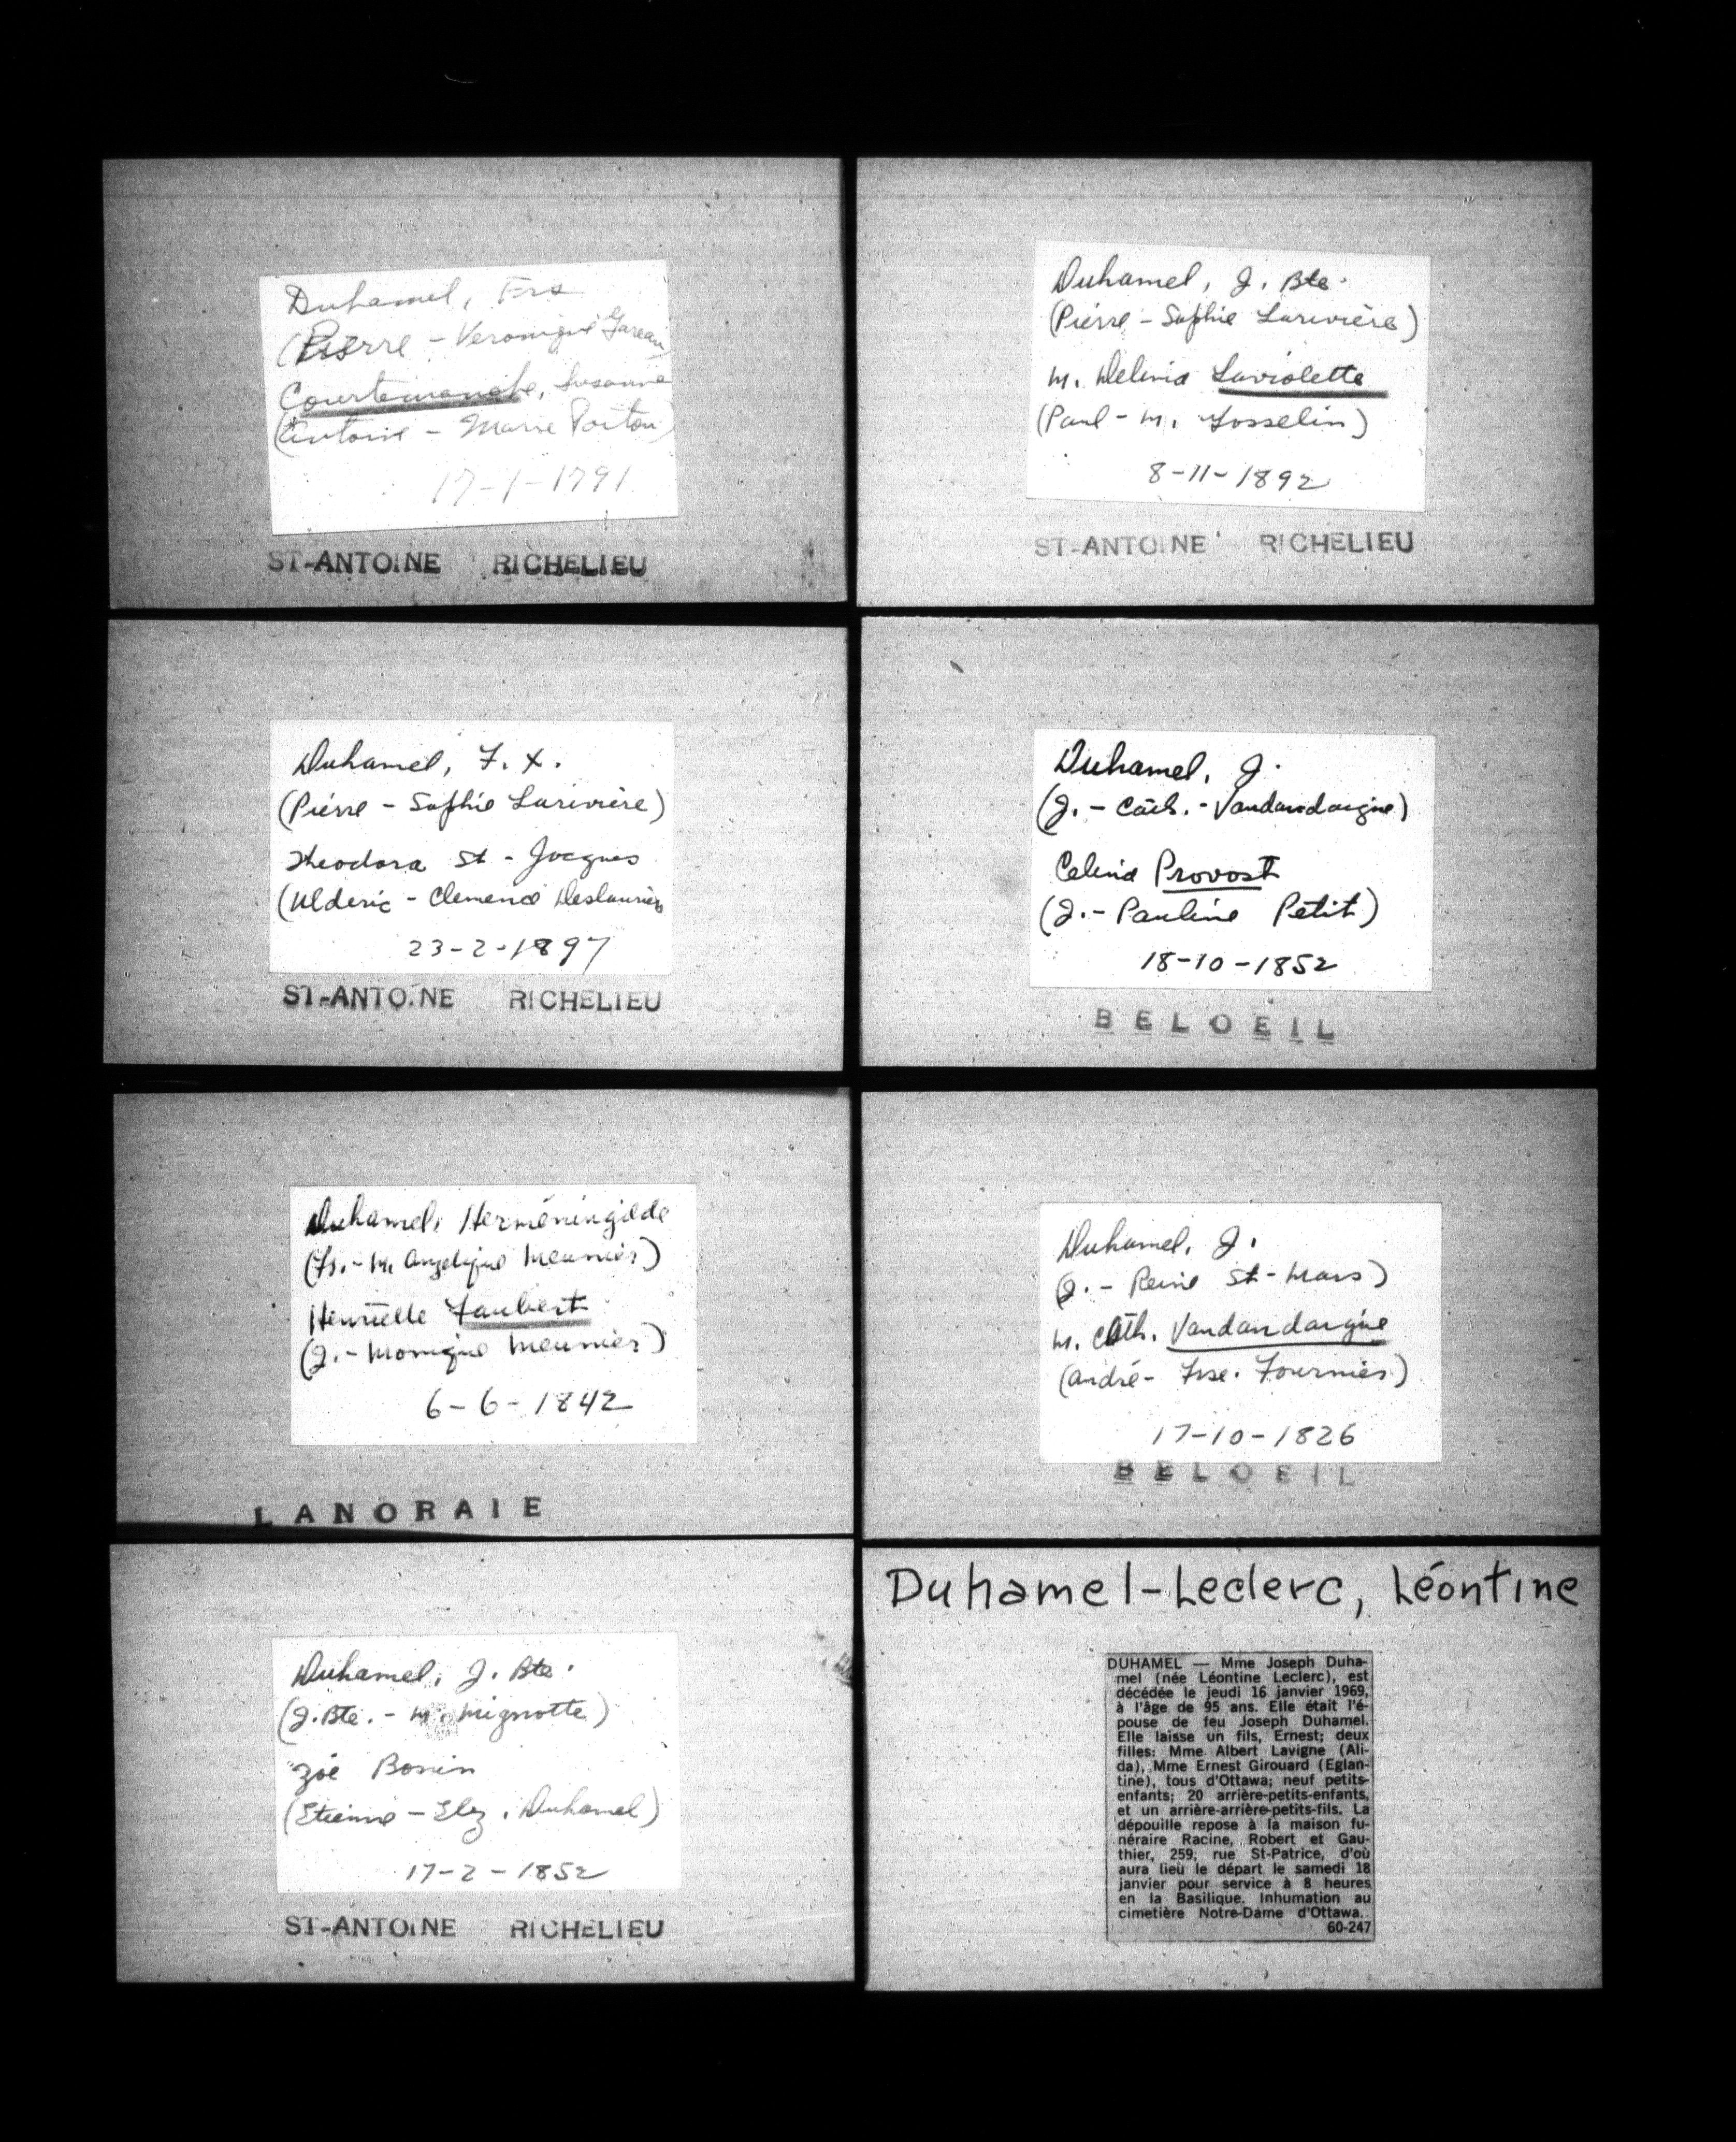 Duhamel, Frs
(Pierre - Veronique Gareau)
Courtemanche, Susanne
(Antoine - Marie Poiton)
17-1-1791
ST-ANTOINE RICHELIEU
Duhamel, J. Bte.
(Pierre - Sophie Larivière)
M. Delina Laviolette
(Paul - M. Josselin)
8-11-1892
ST-ANTOINE RICHELIEU
Duhamel, F. X.
(Pierre - Sophie Larivière)
Theodora St-Jacques
(Ulderic - Clemence Deslauriers
23-2-1897
ST-ANTOINE RICHELIEU
Duhamel, J.
(J. - Cath. - Vandandaigue)
Celina Provost
(J. - Pauline Petit)
18-10-1852
BELOEIL
Duhamel, Herméningilde
(Fs. - M. Angelique Meunier)
Henriette Faubert
(J. - Monique Meunier)
6-6-1842
LANORAIE
Duhamel, J.
(J. - Reine St-Mars)
M. Cath. Vandandaigue
(André - Frse. Fournier)
17-10-1826
BELOEIL
Duhamel, J. Bte.
(J. Bte. - M. Mignotte)
Zoé Bonin
(Etienne - Elz. Duhamel)
17-2-1852
ST-ANTOINE RICHELIEU
Duhamel-Leclerc, Léontine
DUHAMEL — Mme Joseph Duha-
mel (née Léontine Leclerc), est
décédée le jeudi 16 janvier 1969,
à l'âge de 95 ans. Elle était l'é-
pouse de feu Joseph Duhamel.
Elle laisse un fils, Ernest; deux
filles: Mme Albert Lavigne (Ali-
da), Mme Ernest Girouard (Eglan-
tine), tous d'Ottawa; neuf petits-
enfants; 20 arrière-petits-enfants,
et un arrière-arrière-petits-fils. La
dépouille repose à la maison fu-
néraire Racine, Robert et Gau-
thier, 259, rue St-Patrice, d'où
aura lieu le départ le samedi 18
janvier pour service à 8 heures
en la Basilique. Inhumation au
cimetière Notre-Dame d'Ottawa.
60-247